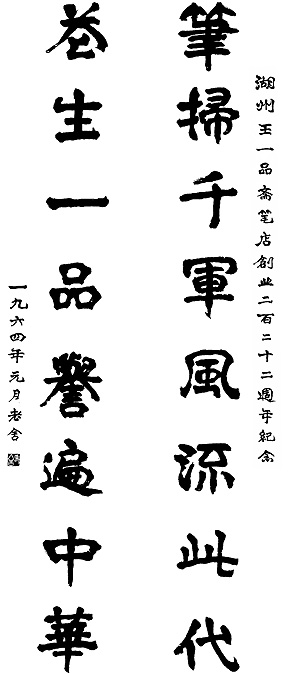 湖州王一品斋笔店創业二百二十二週年紀念
筆掃千軍風流此代
花生一品譽遍中華
一九六四年元月老舍